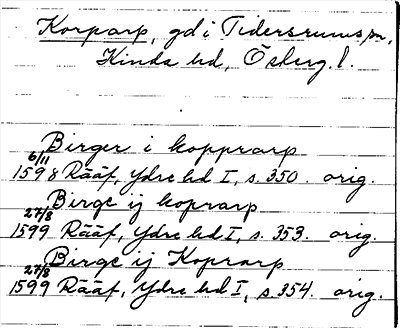 Korparp, gd i Tidersrums sn,
Kinda hd, Österg. l.
Birger i kopprarp
6/11
1598 Rääf, Ydre hd I, s. 350. orig.
Birge ij koprarp
27/8
1599 Rääf, Ydre hd I, s. 353. orig.
Birge ij Koprarp
27/8
1599 Rääf, Ydre hd I, s 354. orig.